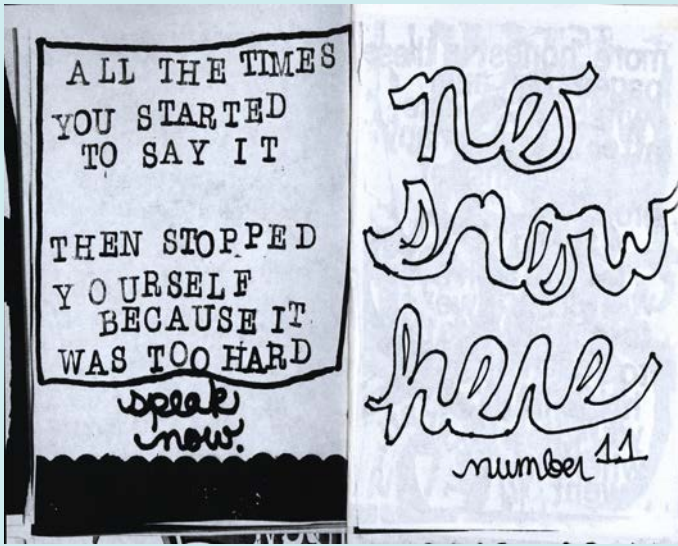 ALL THE TIMES
YOU STARTED
TO SAY IT
THEN STOPPED
YOURSELF
BECAUSE IT
WAS TOO HARD
speak
now.
no
snow
here
number 11